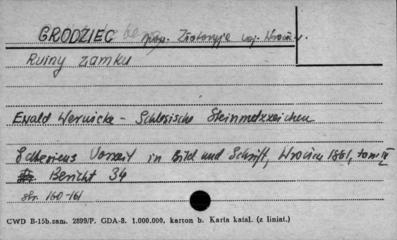 GRODZIEC pow. Złotoryja woj. Wrocław
Ruiny zamku
Ewald Wernicke - Schlesische Steinmetzzeichen
Schlesiens Vorzeit in Bild und Schrift, Wrocław 1881, tom IV
Bericht 34
str. 160-161
CWD B-15b.zam. 2899/P. GDA-8. 1.000.000, karton b. Karta katal. (z liniat.)